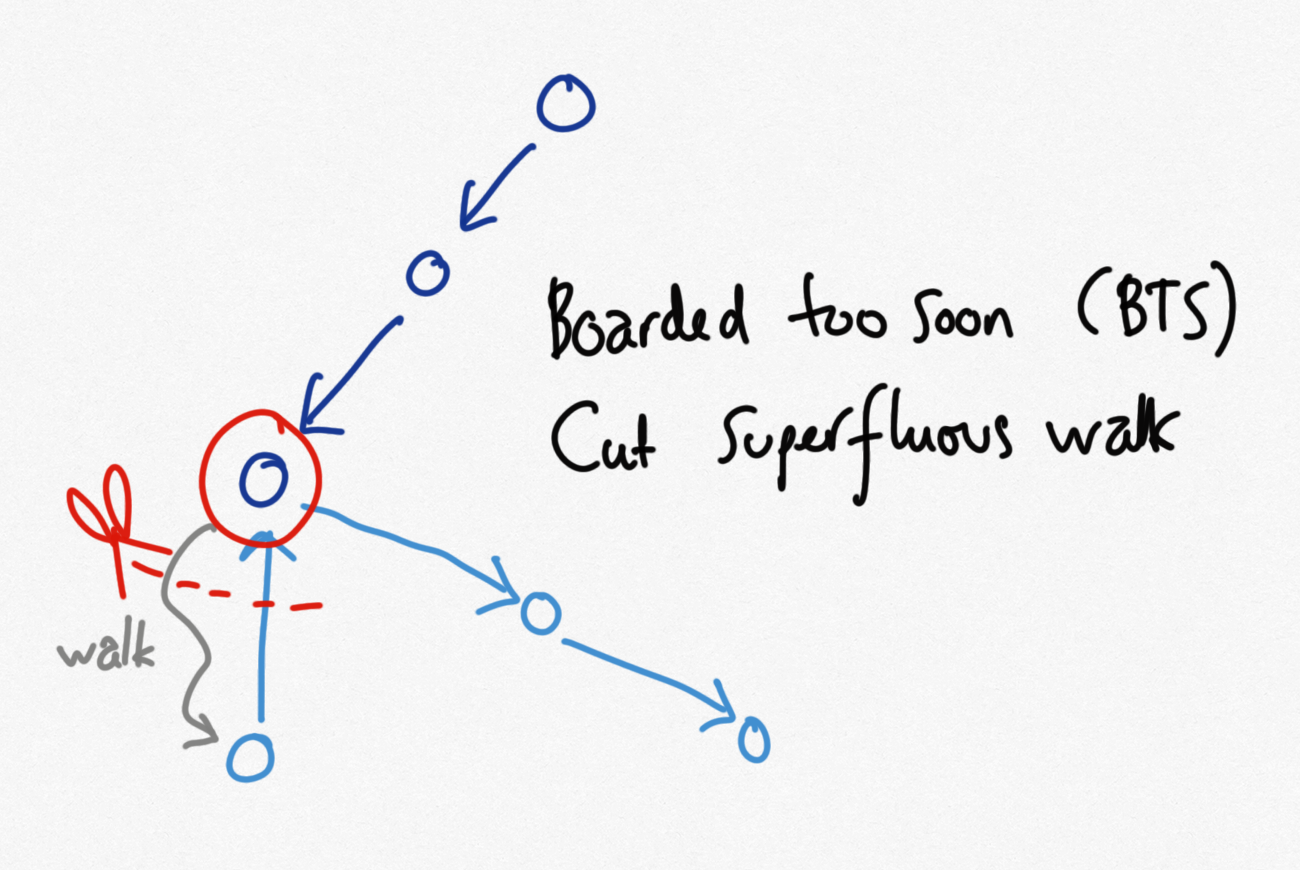 Boarded too soon (BTS)
Cut superfluous walk
walk